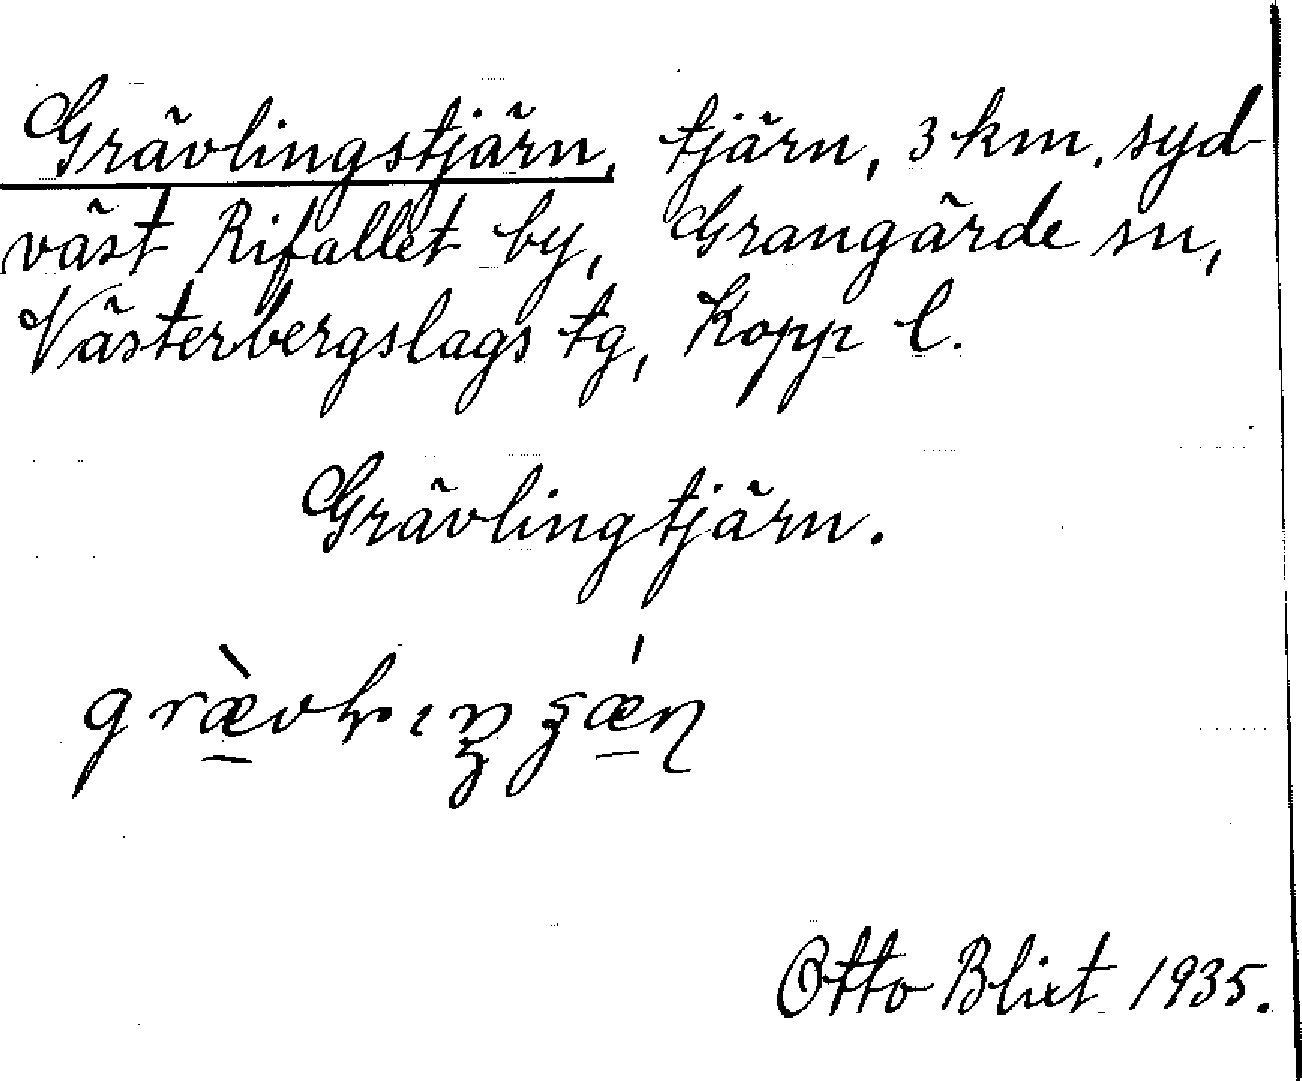 Grävlingstjärn, tjärn, 3 km. syd-
väst Rifallet by, Grangärde sn,
Västerbergslags tg, Kopp l.
Grävlingtjärn.
Otto Blixt 1935.